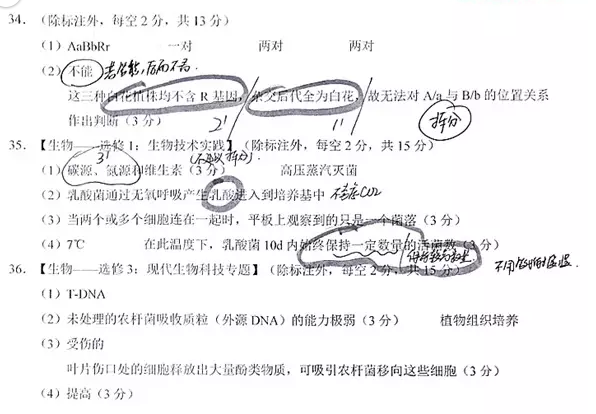 34. （除标注外，每空 2 分，共 13 分）
（1）AaBbRr 一对 两对 两对
（2）不能
这三种白花植株均不含 R 基因，杂交后代全为白花，故无法对 A/a 与 B/b 的位置关系
作出判断（3 分） 2' 1' 拆分
35. 【生物——选修 1：生物技术实践】（除标注外，每空 2 分，共 15 分）
3' （不可以拆分）
（1）碳源、氮源和维生素（3 分） 高压蒸汽灭菌
（2）乳酸菌通过无氧呼吸产生乳酸进入到培养基中 CO2
（3）当两个或多个细胞连在一起时，平板上观察到的只是一个菌落（3 分）
（4）7℃ 在此温度下，乳酸菌 10d 内始终保持一定数量的活菌数（3 分）
36. 【生物——选修 3：现代生物科技专题】（除标注外，每空 2 分，共 15 分）
（1）T-DNA
（2）未处理的农杆菌吸收质粒（外源 DNA）的能力极弱（3 分） 植物组织培养
（3）受伤的
叶片伤口处的细胞释放出大量酚类物质，可吸引农杆菌移向这些细胞（3 分）
（4）提高（3 分）